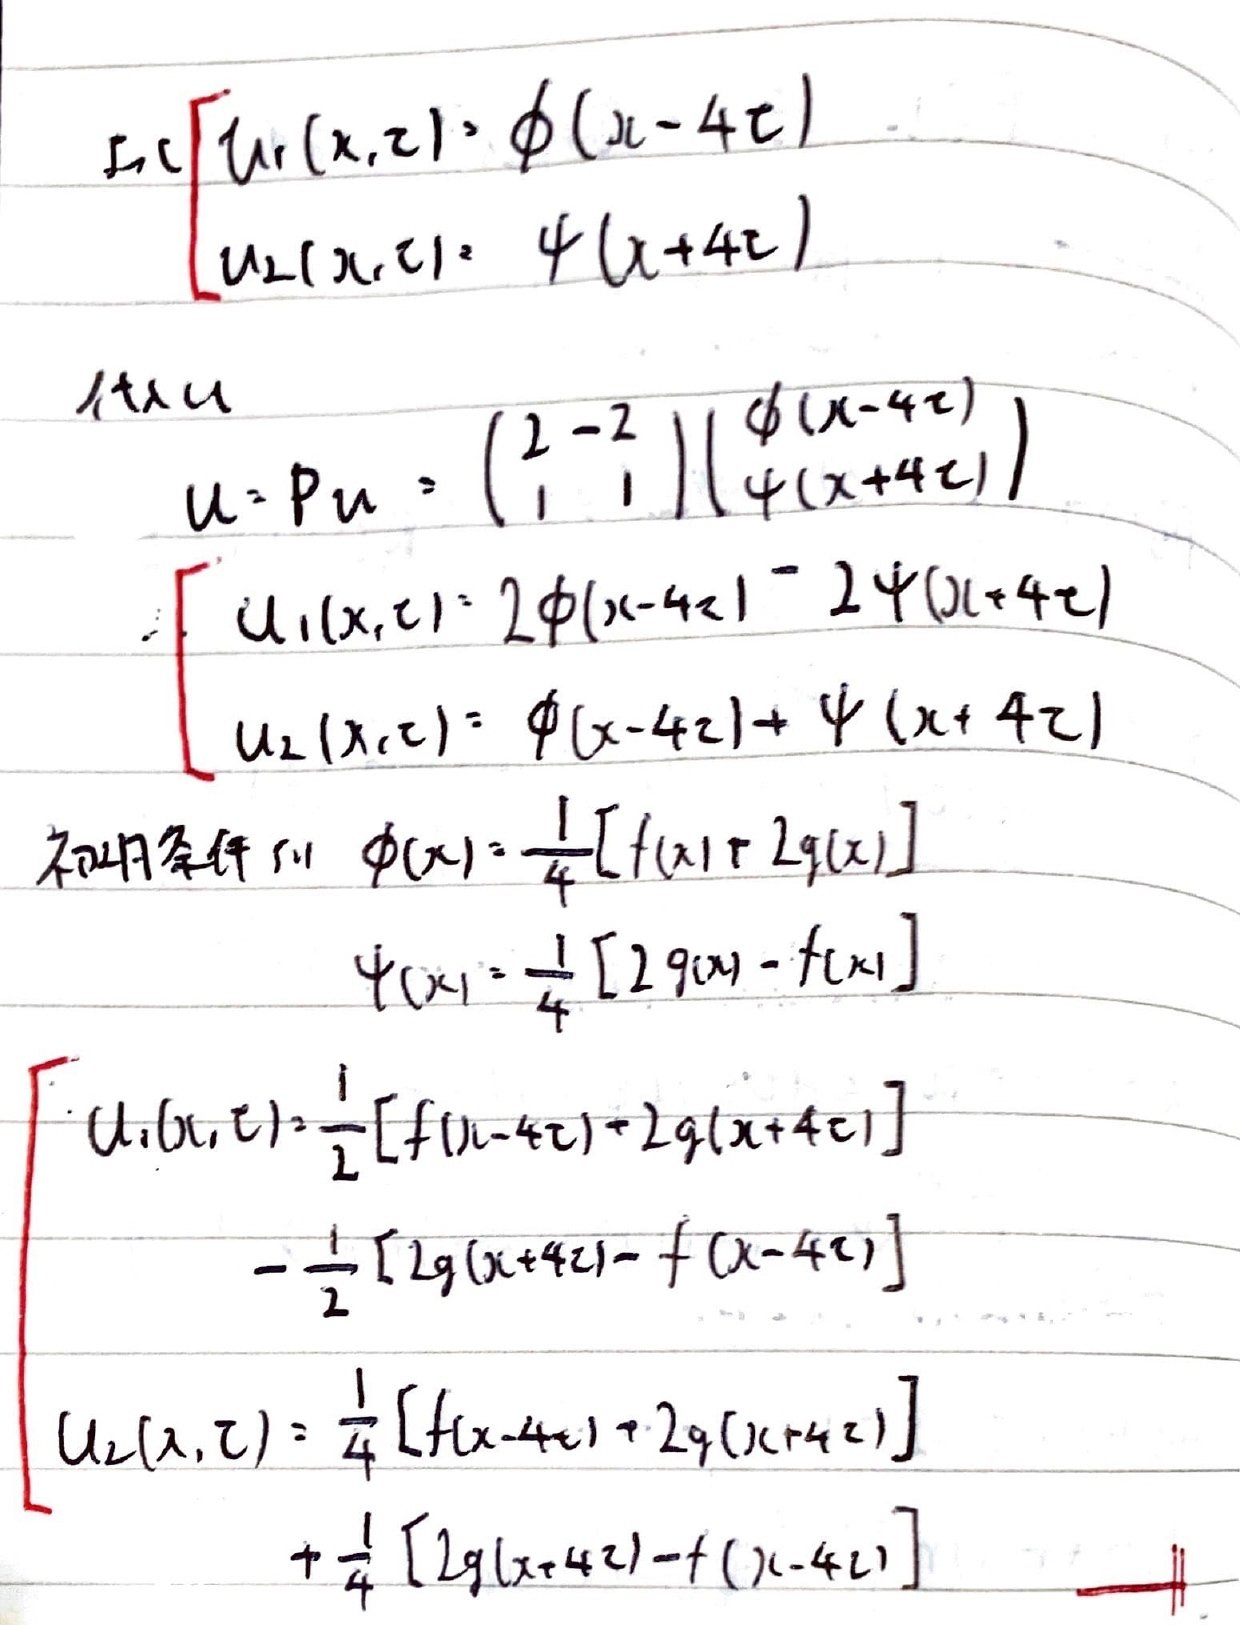 [u₁(x,t) = φ(x-4t)
u₂(x,t) = ψ(x+4t)
代入 u
u = Pu = (2 -2 / 1 1)(φ(x-4t) / ψ(x+4t))
∴ [u₁(x,t) = 2φ(x-4t) - 2ψ(x+4t)
u₂(x,t) = φ(x-4t) + ψ(x+4t)
初期条件より φ(x) = 1/4 [f(x) + 2g(x)]
ψ(x) = 1/4 [2g(x) - f(x)]
[u₁(x,t) = 1/2 [f(x-4t) + 2g(x+4t)]
- 1/2 [2g(x+4t) - f(x-4t)]
u₂(x,t) = 1/4 [f(x-4t) + 2g(x+4t)]
+ 1/4 [2g(x+4t) - f(x-4t)]